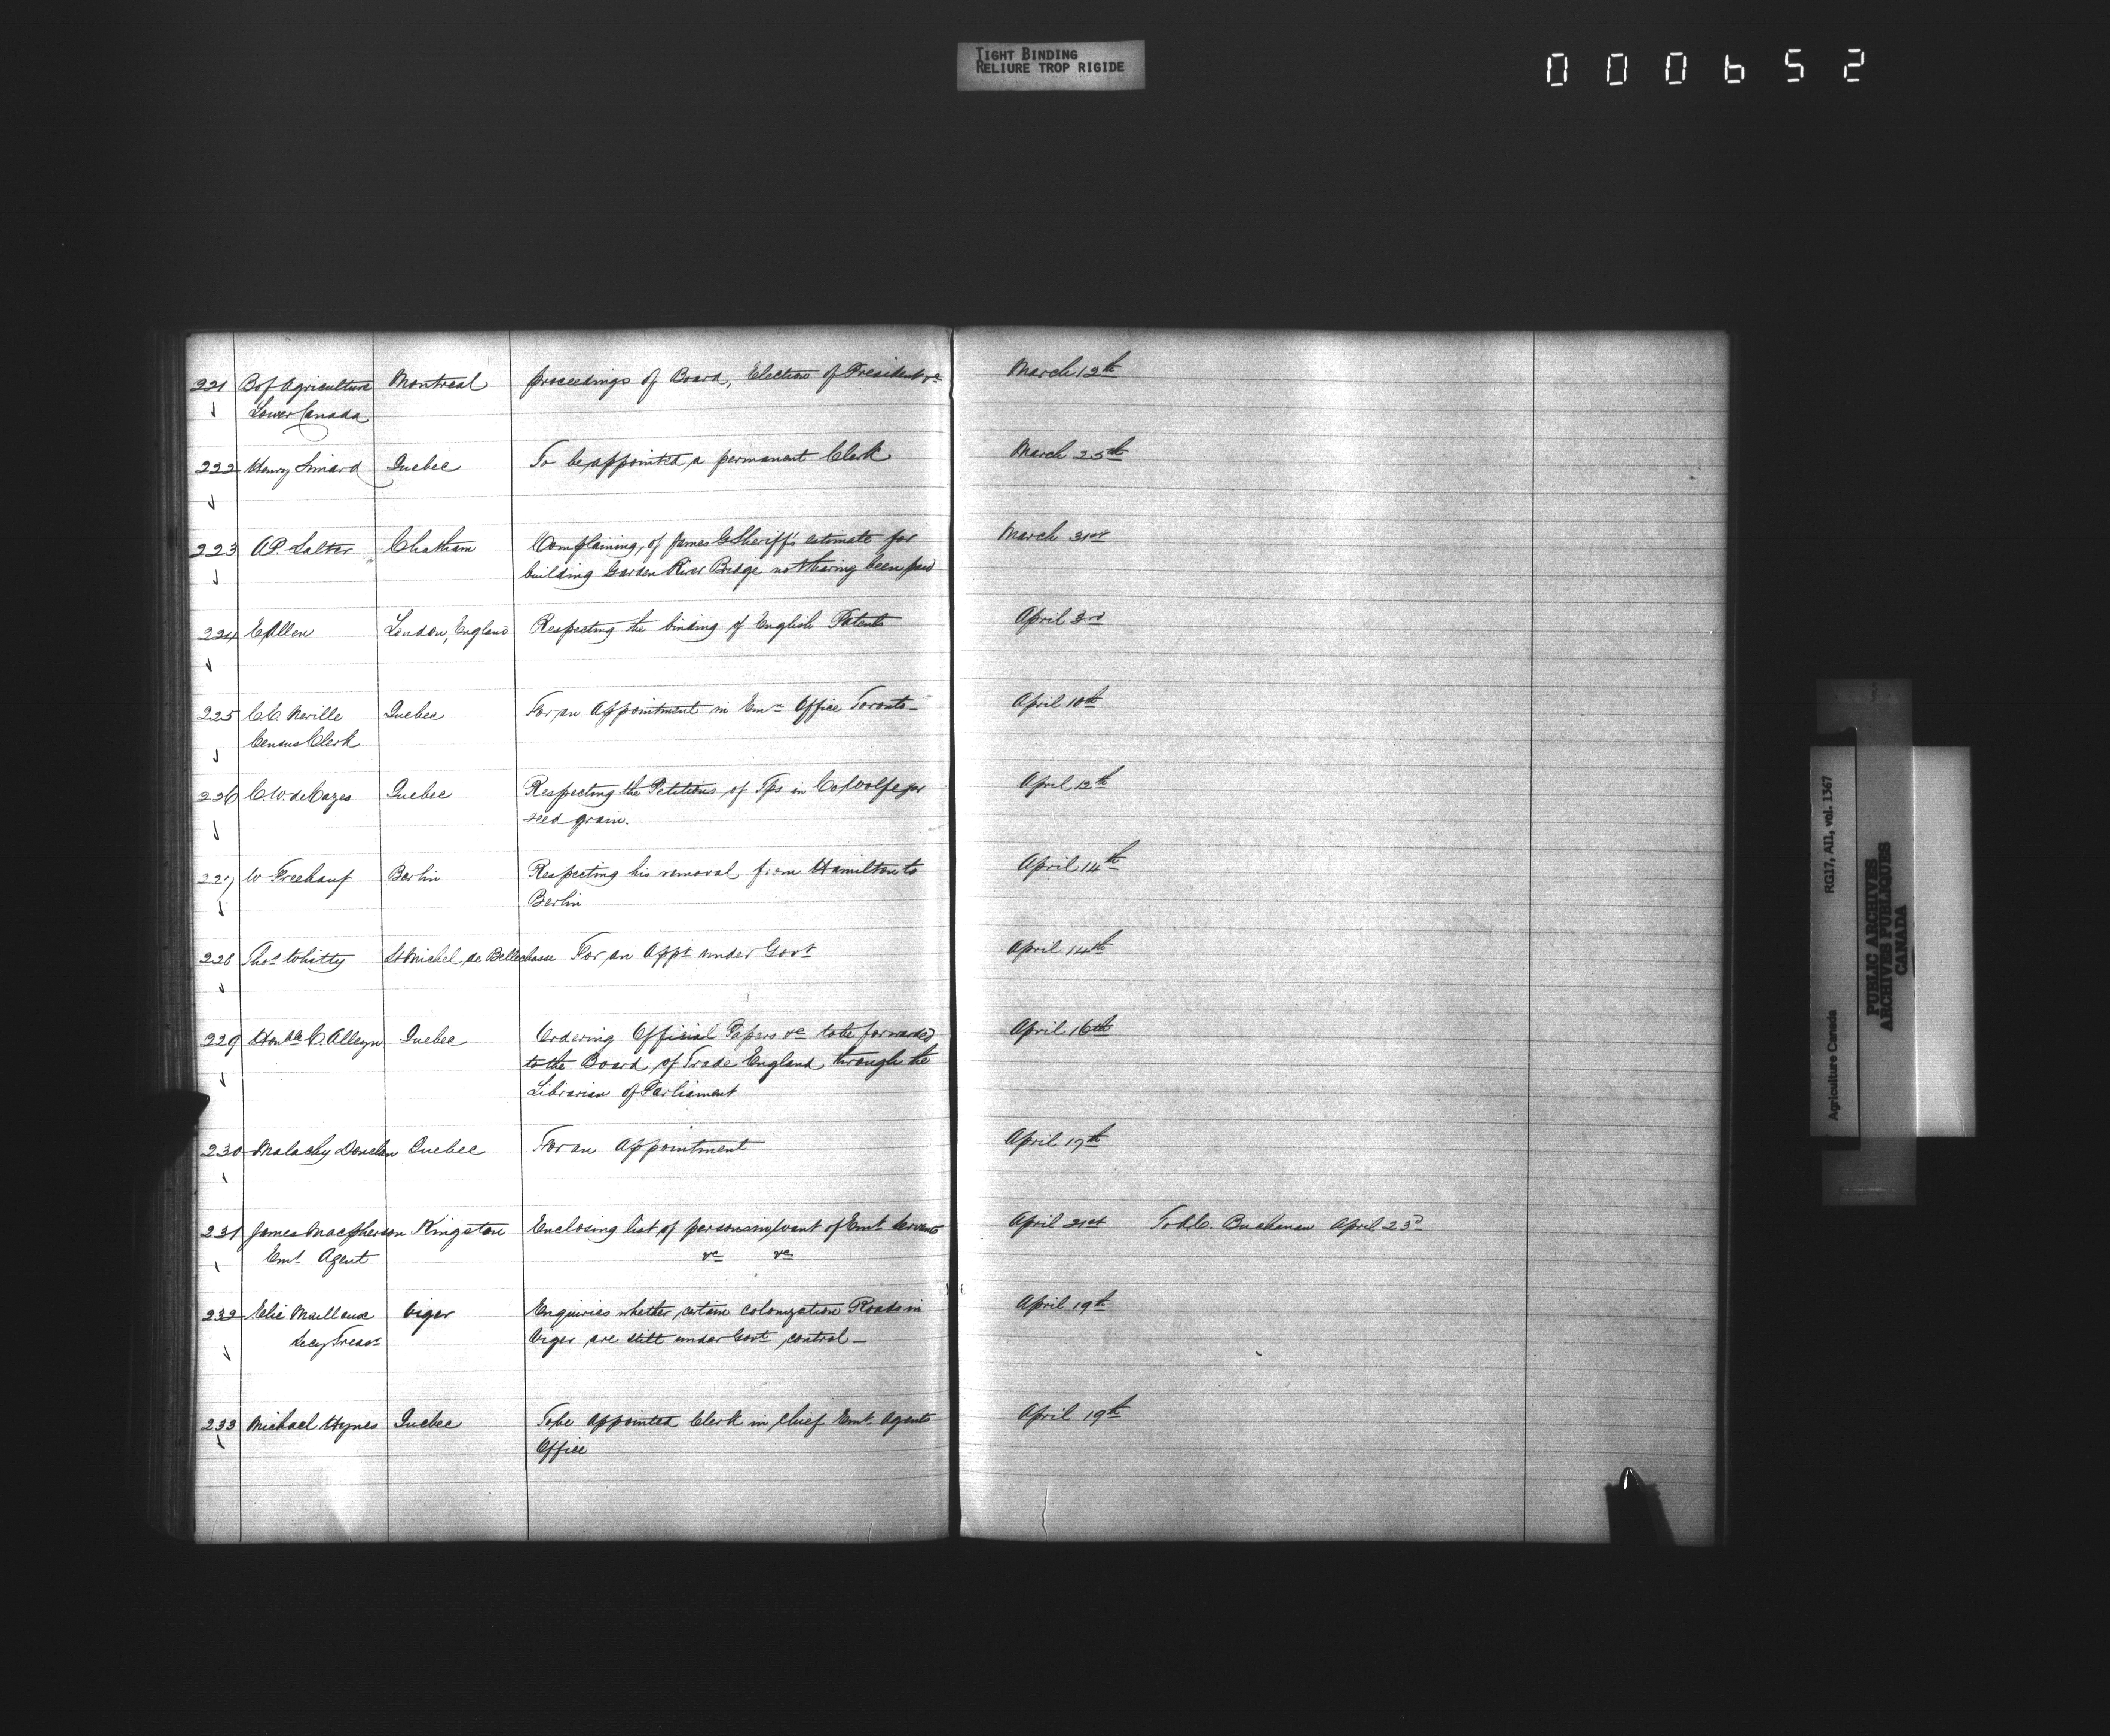 TIGHT BINDING
RELIURE TROP RIGIDE
000652
221 B of Agriculture Montreal Proceedings of Board, Election of President &c March 12th
Lower Canada
222 Henry Simard Quebec To be appointed a permanent Clerk March 25th
223 A.P. Salter Chatham Complaining of James G Sheriff's estimate for March 31st
building Garden River Bridge not having been paid
224 E Allen London, England Respecting the binding of English Patents April 3rd
225 C C Neville Quebec For an Appointment in Emn Office Toronto – April 10th
Census Clerk
226 C.W. de Cazes Quebec Respecting the Petitions of Tps in Co Wolfe for April 12th
seed grain.
227 W Freehauf Berlin Respecting his removal from Hamilton to April 14th
Berlin
228 Thos Whitty St Michel de Bellechasse For an Appt under Govt April 14th
229 Honble C. Alleyn Quebec Ordering Official Papers &c to be forwarded April 16th
to the Board of Trade England through the
Librarian of Parliament
230 Malachy Quebec For an Appointment April 17th
231 James Macpherson Kingston Enclosing list of persons in want of Emt Servants April 21st To A.C. Buchanan April 23d
Emt Agent &c &c
232 Elie Mailloux Viger Enquiries whether certain colonization Roads in April 19th
Secy Treasr Viger are still under Govt control –
233 Michael Hynes Quebec To be appointed Clerk in chief Emt Agents April 19th
Office
Agriculture Canada RG17, AII, vol. 1367
PUBLIC ARCHIVES
ARCHIVES PUBLIQUES
CANADA